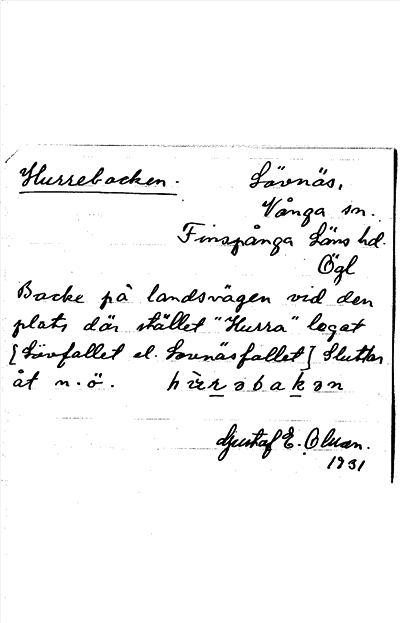 Hurrebacken.
Lövnäs,
Vånga sn.
Finspånga Läns hd.
Ögl
Backe på landsvägen vid den
plats där stället "Hurra" legat
[Lövfallet el. Lövnäsfallet] Sluttar
åt n.ö. hùrəbakən
Gustaf E. Olsson.
1931